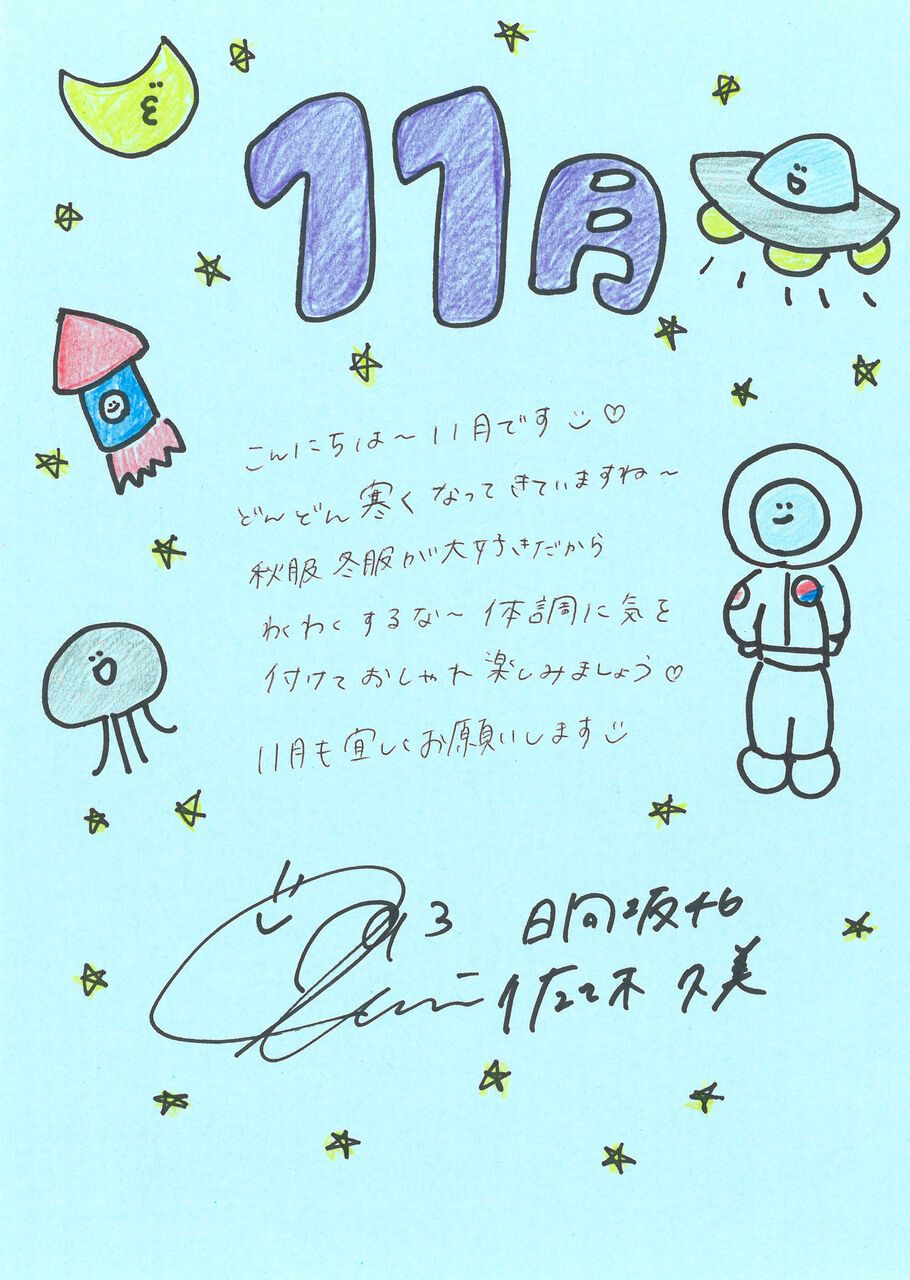 11月
こんにちは〜11月です♡
どんどん寒くなってきていますね〜
秋服冬服が大好きだから
わくわくするな〜体調に気を
付けておしゃれ楽しみましょう♡
11月も宜しくお願いします
日向坂46
佐々木久美